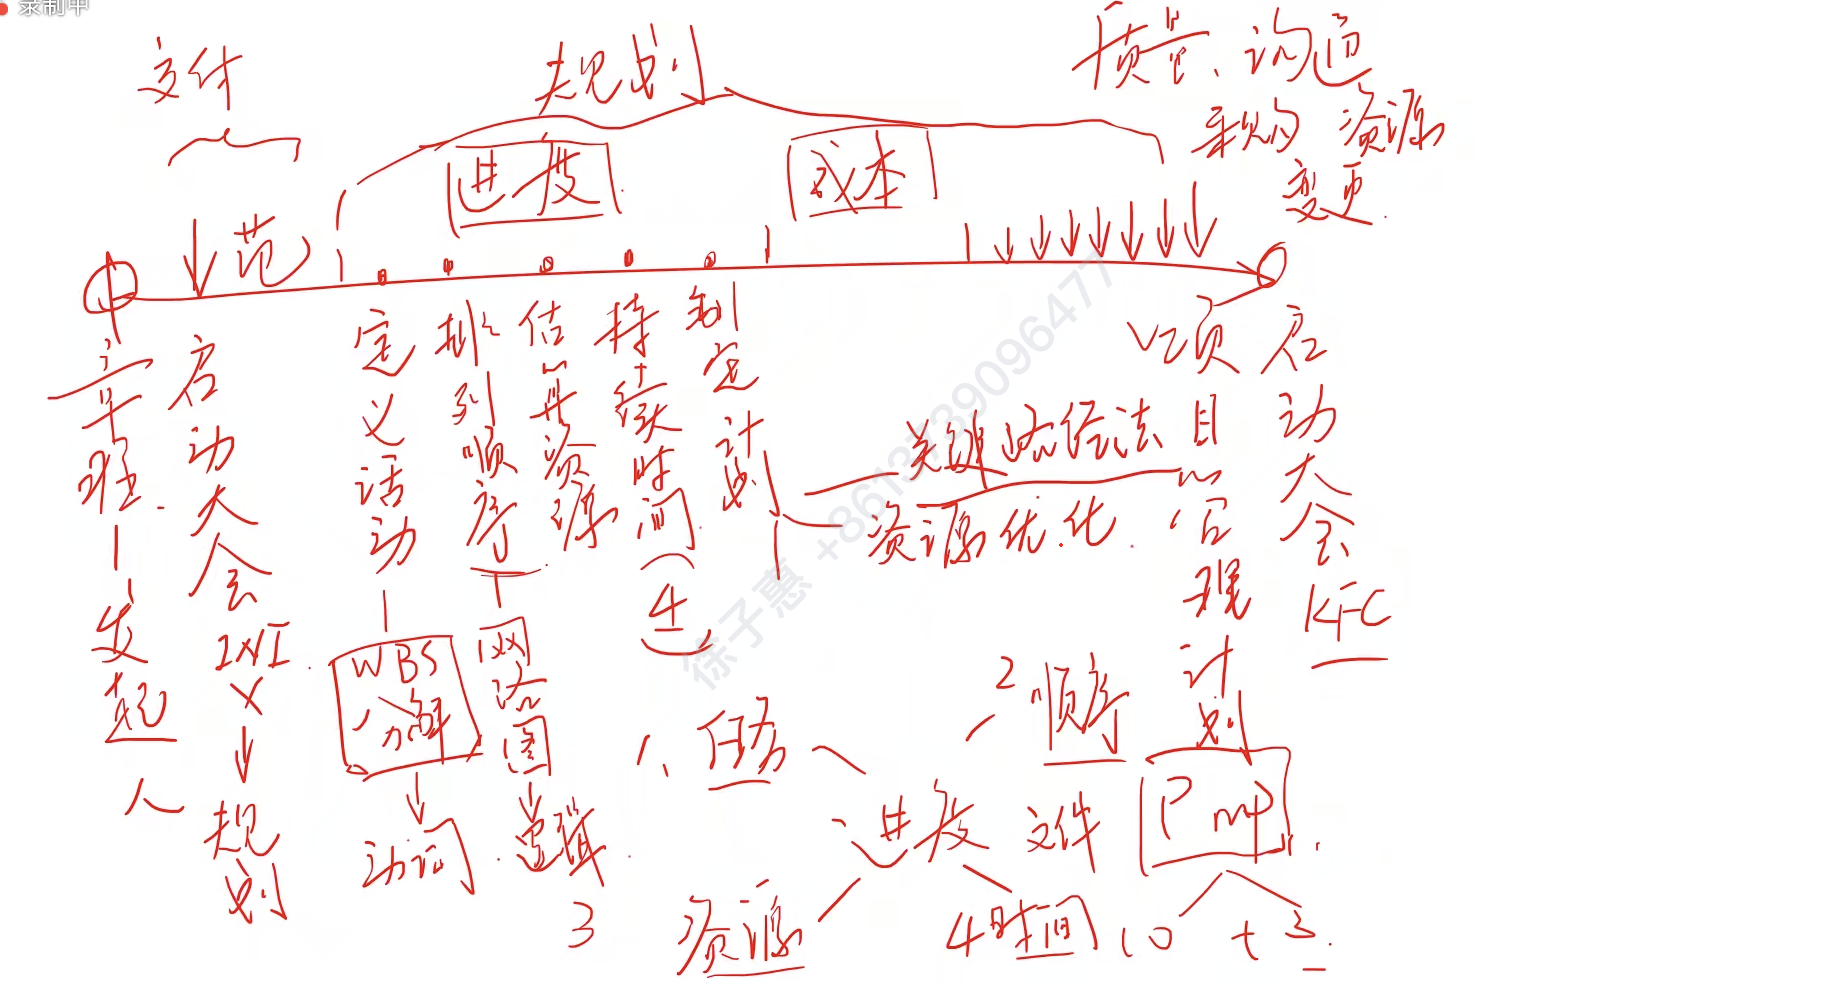 录制中
文件
规划
质量、沟通
采购 资源
变更.
进度
成本
范
章程
发起人
启动大会
INI
规划
定义活动
WBS
分解
动词
排列顺序
网络图
逻辑
估算资源
持续时间
(4)
制定计划
关键路径法
资源优化.
项目管理计划
启动大会
KFC
1、任务
2 顺序
进度
文件
3 资源
4时间
Pmp
10 + 3.
徐子惠 +8613739096477